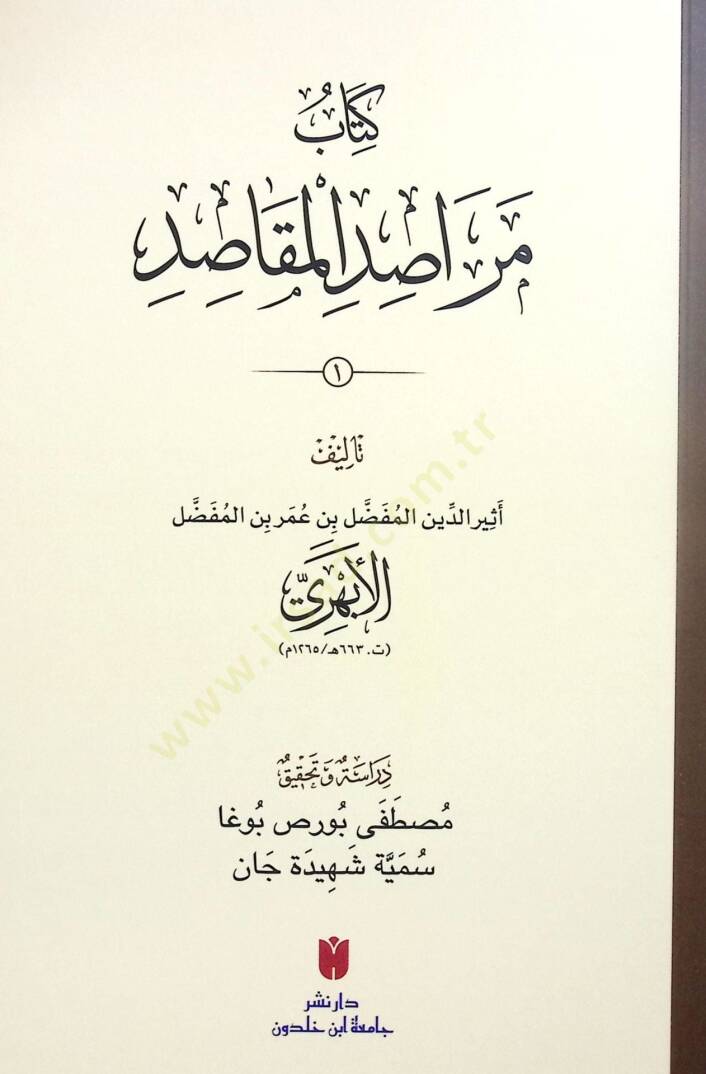 كِتَابُ
مَرَاصِدِ الْمَقَاصِدِ
١
تَأليف
أَثِير الدِّين المُفَضَّل بِن عُمَر بِن المُفَضَّل
الأَبْهَرِيّ
(ت. ٦٦٣هـ/١٢٦٥م)
دِرَاسَةٌ وَتَحْقِيقٌ
مُصطَفَى بُورص بُوغا
سُمَيَّة شَهِيدَة جَان
دار نشر
جامعة ابن خلدون